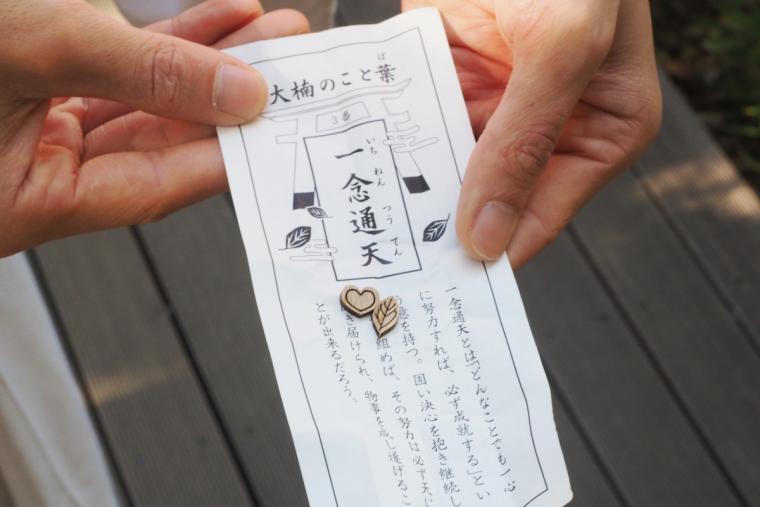 大楠のこと葉
ば
3番
一念通天
いちねんつうてん
一念通天とは「どんなことでも一心
に努力すれば、必ず成就する」とい
う意を持つ。固い決心を抱き継続し
組めば、その努力は必ず天に
き届けられ、物事を成し遂げるこ
とが出来るだろう。